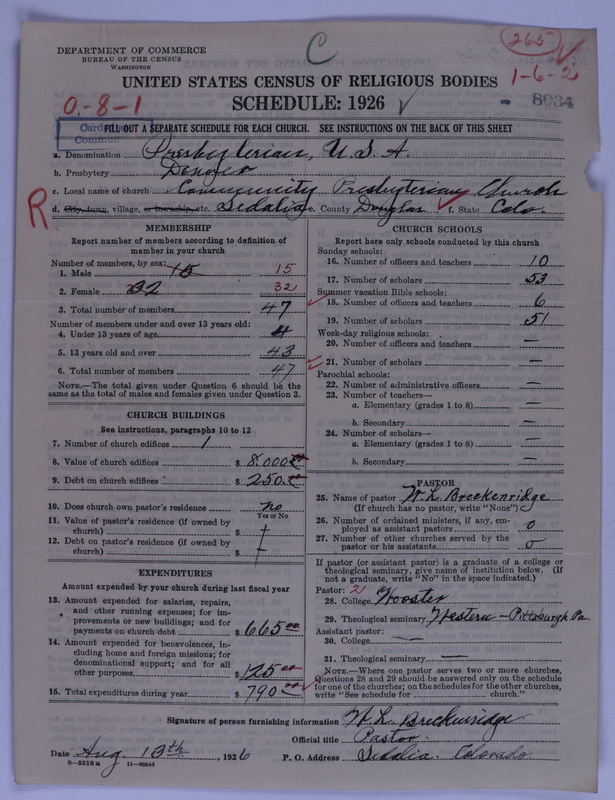 C
265
DEPARTMENT OF COMMERCE
BUREAU OF THE CENSUS
WASHINGTON
UNITED STATES CENSUS OF RELIGIOUS BODIES
1-6-2
0-8-1
SCHEDULE: 1926
8034
FILL OUT A SEPARATE SCHEDULE FOR EACH CHURCH. SEE INSTRUCTIONS ON THE BACK OF THIS SHEET
a. Denomination Presbyterian, U.S.A.
b. Presbytery Denver
c. Local name of church Community Presbyterian Church
R
d. City, town, village, or township, etc. Sedalia e. County Douglas f. State Colo.
MEMBERSHIP
Report number of members according to definition of member in your church
Number of members, by sex:
1. Male 15 15
2. Female 32 32
3. Total number of members 47
Number of members under and over 13 years old:
4. Under 13 years of age 4
5. 13 years old and over 43
6. Total number of members 47
NOTE.—The total given under Question 6 should be the same as the total of males and females given under Question 3.
CHURCH BUILDINGS
See instructions, paragraphs 10 to 12
7. Number of church edifices 1
8. Value of church edifices $ 8,000.00
9. Debt on church edifices $ 250.00
10. Does church own pastor's residence no
Yes or No
11. Value of pastor's residence (if owned by church) $
12. Debt on pastor's residence (if owned by church) $
EXPENDITURES
Amount expended by your church during last fiscal year
13. Amount expended for salaries, repairs, and other running expenses; for improvements or new buildings; and for payments on church debt $ 665.00
14. Amount expended for benevolences, including home and foreign missions; for denominational support; and for all other purposes $ 125.00
15. Total expenditures during year $ 790.00
CHURCH SCHOOLS
Report here only schools conducted by this church
Sunday schools:
16. Number of officers and teachers 10
17. Number of scholars 53
Summer vacation Bible schools:
18. Number of officers and teachers 6
19. Number of scholars 51
Week-day religious schools:
20. Number of officers and teachers —
21. Number of scholars —
Parochial schools:
22. Number of administrative officers —
23. Number of teachers—
a. Elementary (grades 1 to 8) —
b. Secondary —
24. Number of scholars—
a. Elementary (grades 1 to 8) —
b. Secondary —
PASTOR
25. Name of pastor W. L. Breckenridge
(If church has no pastor, write "None")
26. Number of ordained ministers, if any, employed as assistant pastors 0
27. Number of other churches served by the pastor or his assistants 0
If pastor (or assistant pastor) is a graduate of a college or theological seminary, give name of institution below. (If not a graduate, write "No" in the space indicated.)
Pastor: 2
28. College Wooster
29. Theological seminary Western - Pittsburgh Pa.
Assistant pastor:
30. College —
31. Theological seminary —
NOTE.—Where one pastor serves two or more churches, Questions 28 and 29 should be answered only on the schedule for one of the churches; on the schedules for the other churches, write "See schedule for church."
Signature of person furnishing information W. L. Breckenridge
Official title Pastor
Date Aug. 13th, 1926 P. O. Address Sedalia Colorado
8—5518 a